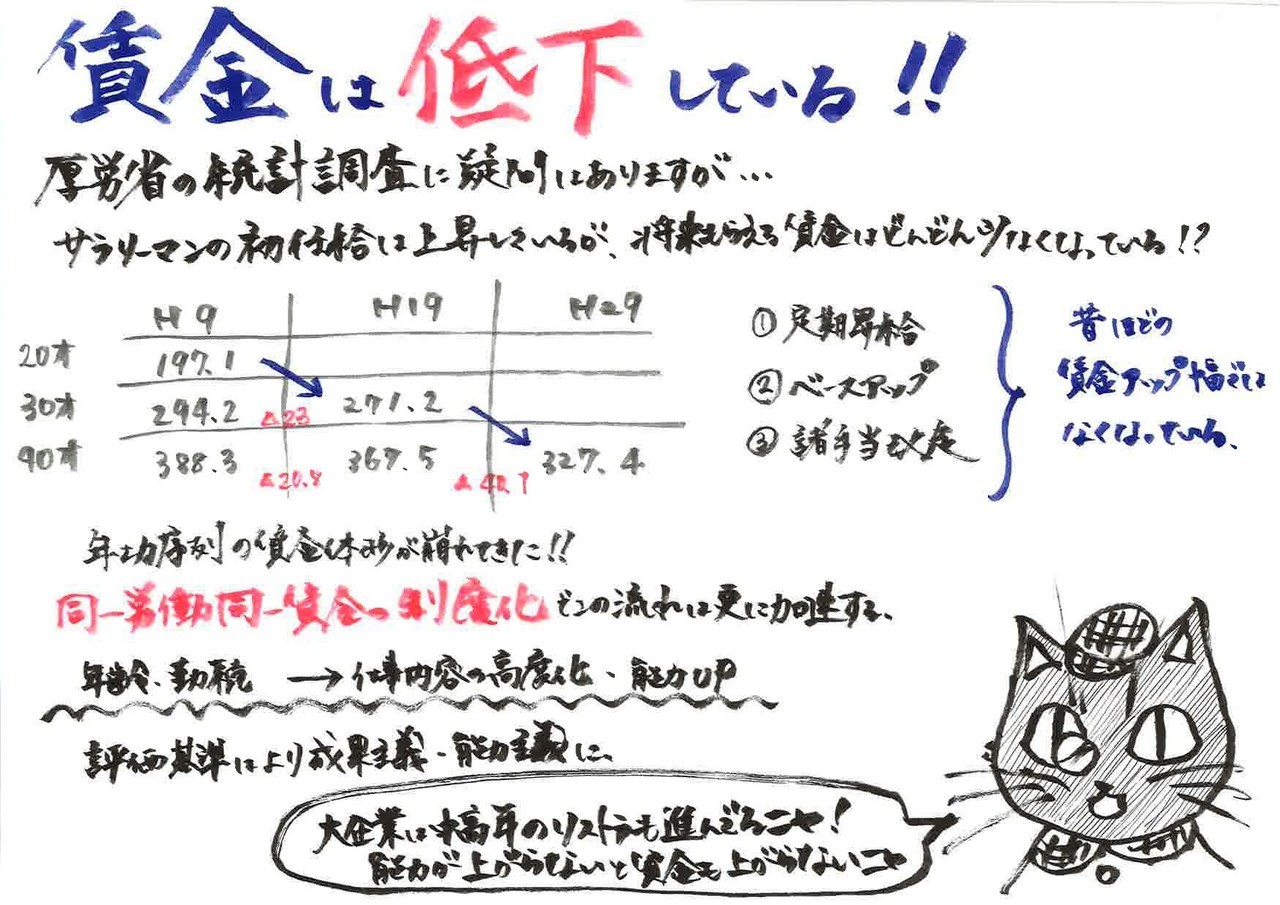 賃金は低下している!!
厚労省の統計調査に疑問はありますが…
サラリーマンの初任給は上昇しているが、将来もらえる賃金はどんどん少なくなっている!?
H9 H19 H29
20才 197.1
30才 294.2 △23 271.2
40才 388.3 △20.8 367.5 △40.1 327.4
①定期昇給
②ベースアップ
③諸手当も改定
昔ほどの
賃金アップ幅では
なくなっている、
年功序列の賃金体系が崩れてきた!!
同一労働同一賃金の制度化でこの流れは更に加速する、
年齢、勤続 → 仕事内容の高度化・能力UP
評価基準により成果主義・能力主義に、
大企業は中高年のリストラも進んでるニャ!
能力が上がらないと賃金も上がらないニャ